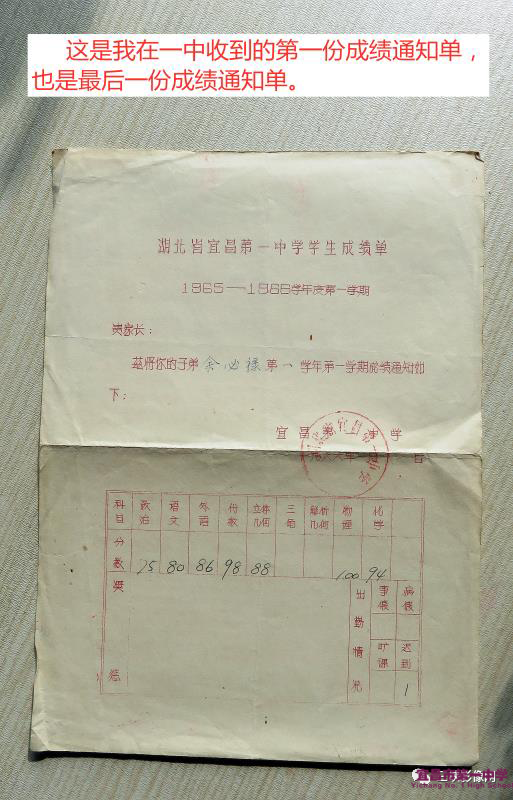 这是我在一中收到的第一份成绩通知单，
也是最后一份成绩通知单。
湖北省宜昌第一中学学生成绩单
1965—1966学年度第一学期
贵家长：
兹将你的子弟余必禄第一学年第一学期成绩通知如
下：
宜昌第一中学
科目 政治 语文 外语 代数 立体几何 三角 解析几何 物理 化学
分数 75 80 86 98 88 100 94
奖惩
出勤情况
事假 病假
旷课 迟到
1
宜昌市第一中学
Yichang No. 1 High School